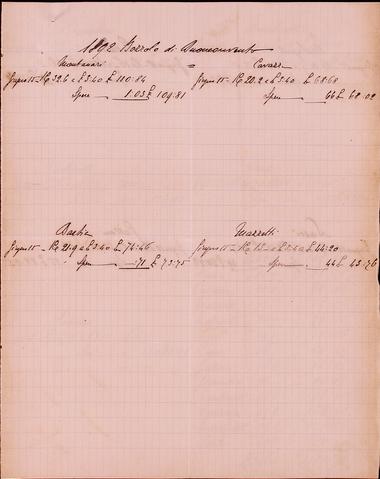 1892 Bozzolo di Buonconvento
Montanari = Cavazzi
Giugno 15 - Kg 32.6 a £ 3.40 £ 110:84
Spese 1:03 £ 109:81
Giugno 15 - Kg 20.2 a £ 3.40 £ 68:68
Spese 66 £ 68:02
Bastia
Giugno 15 - Kg 21.9 a £ 3.40 £ 74:46
Spese :71 £ 73:75
Mazzetti
Giugno 15 - Kg 13 - a £ 3.40 £ 44:20
Spese 44 £ 43:76